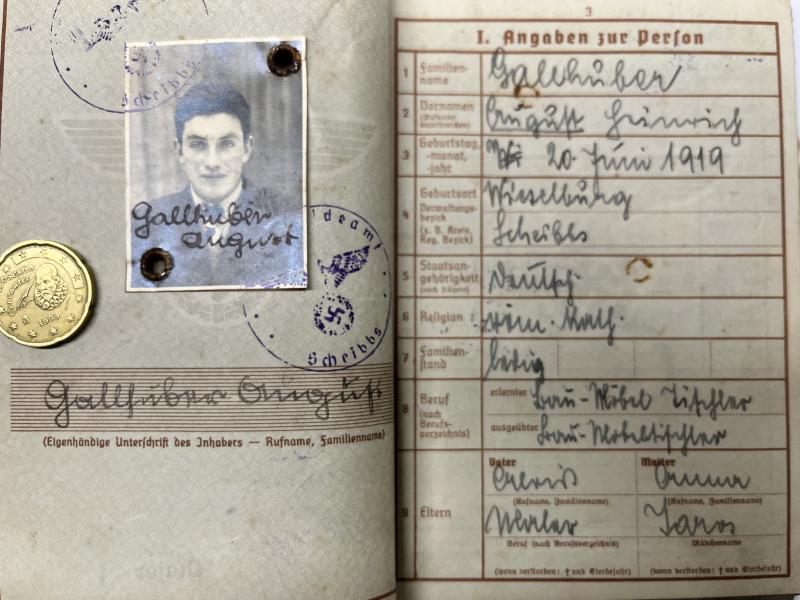 Scheibbs
Gallhuber
August
Meldeamt
Scheibbs
Gallhuber August
(Eigenhändige Unterschrift des Inhabers — Rufname, Familienname)
ESPAÑA
M 1999
3
I. Angaben zur Person
1 Familien-name Gallhuber
2 Vornamen (Rufname unterstreichen) August Heinrich
3 Geburtstag, -monat, -jahr 20. Juni 1919
4 Geburtsort Wieselburg
Verwaltungs-bezirk (z. B. Kreis, Reg. Bezirk) Scheibbs
5 Staatsan-gehörigkeit (auch frühere) Deutsch
6 Religion: röm. kath.
7 Familien-stand ledig
8 Beruf (nach Berufs-verzeichnis) erlernter Bau-Möbel Tischler
ausgeübter Bau-Möbeltischler
9 Eltern Vater Alois Mutter Anna
(Rufname, Familienname) (Rufname, Familienname)
Maler Jaros
Beruf (nach Berufsverzeichnis) Mädchenname
(wenn verstorben: † und Sterbejahr) (wenn verstorben: † und Sterbejahr)